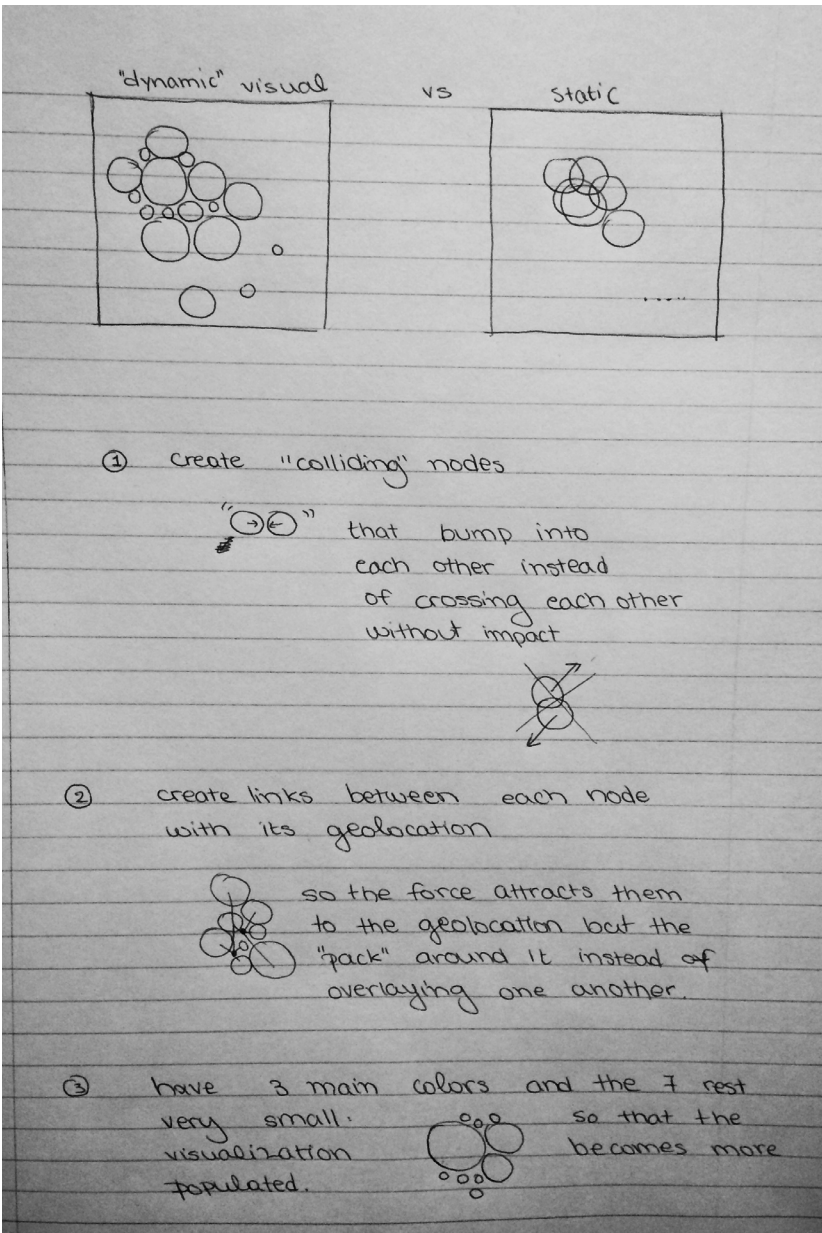 "dynamic" visual vs static
① create "colliding" nodes
" " that bump into
each other instead
of crossing each other
without impact
② create links between each node
with its geolocation
so the force attracts them
to the geolocation but the
"pack" around it instead of
overlaying one another.
③ have 3 main colors and the 7 rest
very small. so that the
visualization becomes more
populated.